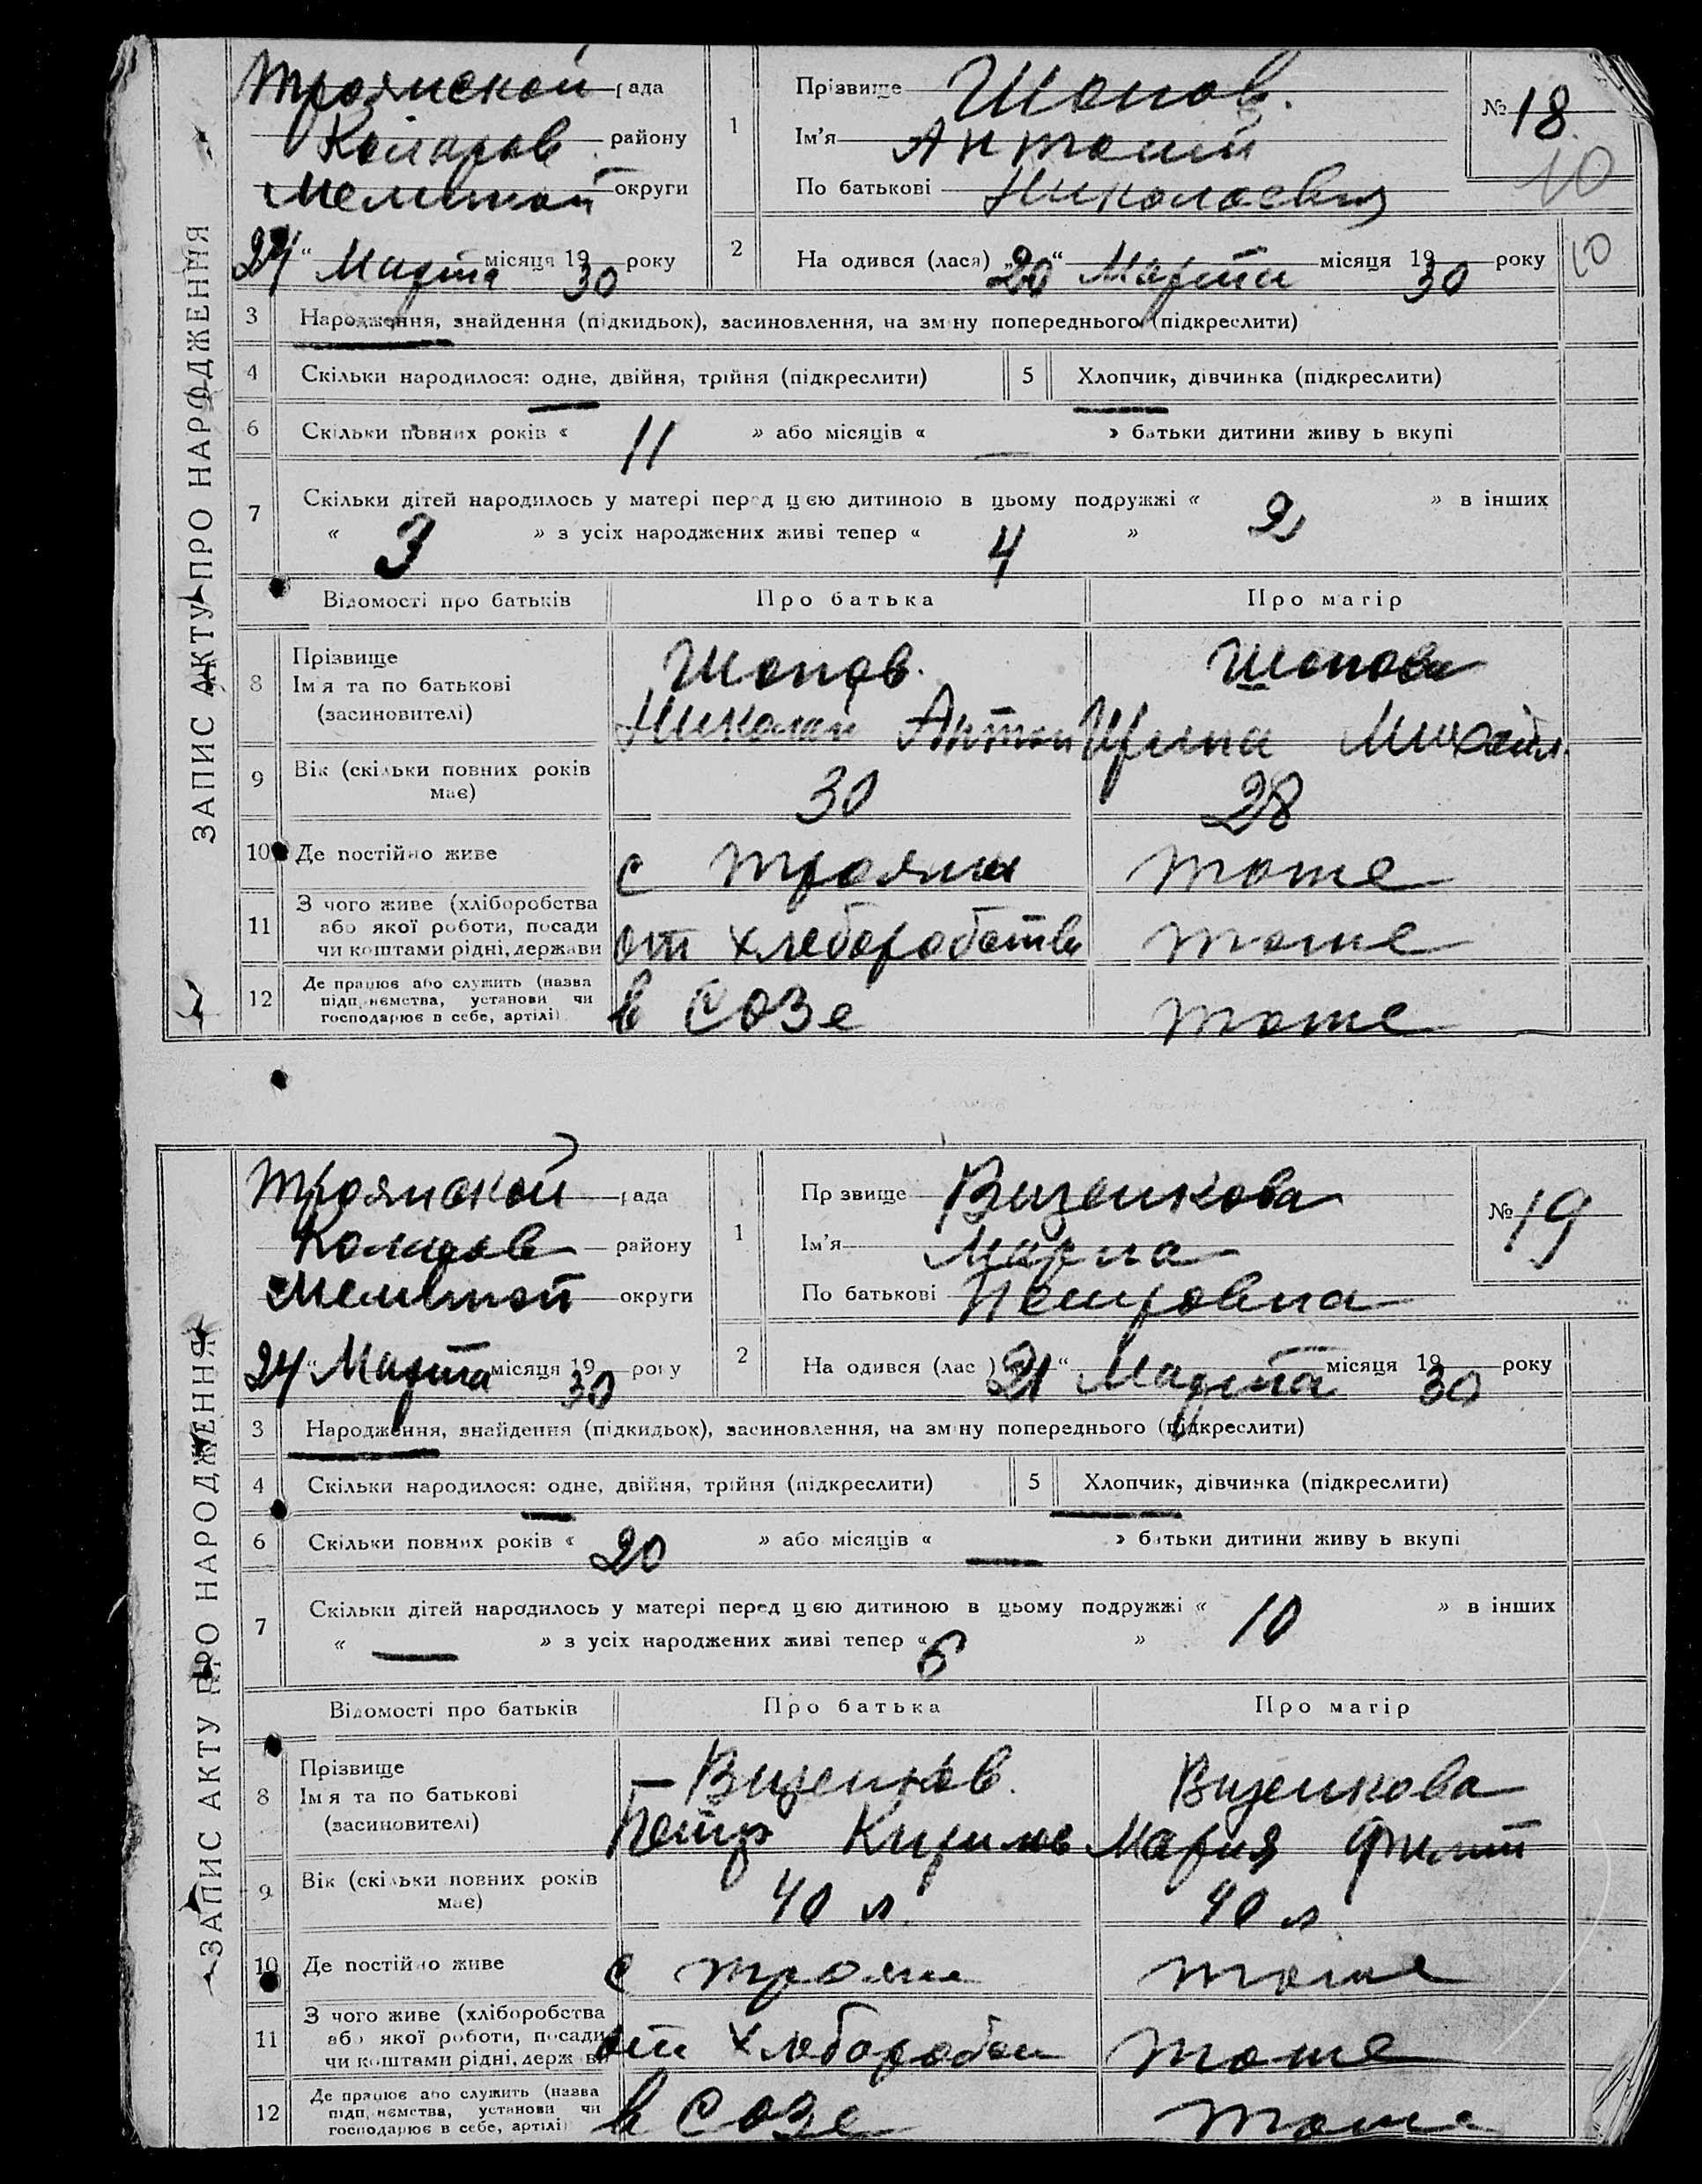 ЗАПИС АКТУ ПРО НАРОДЖЕННЯ
Троянской рада
Коларов району
Мелитпой округи
24 " Марта місяця 1930 року
1 Прізвище Шопов.
Ім'я Антоний
По батькові Николаевич
№ 18.
10
2 На одився (лася) „20" Марта місяця 1930 року
10
3 Народження, знайдення (підкидьок), засиновлення, на зм ну попереднього (підкреслити)
4 Скільки народилося: одне, двійня, трійня (підкреслити) 5 Хлопчик, дівчинка (підкреслити)
6 Скільки повних років « 11 » або місяців « — » батьки дитини живу ь вкупі
7 Скільки дітей народилось у матері перед цією дитиною в цьому подружжі « 2 » в інших
« 3 » з усіх народжених живі тепер « 4 »
Відомості про батьків Про батька Про матір
8 Прізвище Шопов. Шопова
Ім'я та по батькові Николай Антон Ирина Михайл.
(засиновителі)
9 Вік (скільки повних років має) 30 28
10 Де постійно живе с Трояны тоже
11 З чого живе (хліборобства
або якої роботи, посади
чи коштами рідні, держави от хлеборобства тоже
12 Де працює або служить (назва
підприємства, установи чи
господарює в себе, артілі) в СОЗе тоже
ЗАПИС АКТУ ПРО НАРОДЖЕННЯ
Троянской рада
Коларов району
Мелитпой округи
24 " Марта місяця 1930 року
1 Пр звище Визенкова
Ім'я Мария
По батькові Петровна
№ 19
2 На одився (лас ) 21 " Марта місяця 1930 року
3 Народження, знайдення (підкидьок), засиновлення, на зм ну попереднього (підкреслити)
4 Скільки народилося: одне, двійня, трійня (підкреслити) 5 Хлопчик, дівчинка (підкреслити)
6 Скільки повних років « 20 » або місяців « — » батьки дитини живу ь вкупі
7 Скільки дітей народилось у матері перед цією дитиною в цьому подружжі « 10 » в інших
« — » з усіх народжених живі тепер « 6 »
Відомості про батьків Про батька Про матір
8 Прізвище — Визенков. Визенкова
Ім'я та по батькові Петр Кирилов Мария Филип
(засиновителі)
9 Вік (скільки повних років має) 40 л. 40 л
10 Де постійно живе с Трояны тоже
11 З чого живе (хліборобства
або якої роботи, посади
чи коштами рідні, держ ви от хлебороб тоже
12 Де працює або служить (назва
підприємства, установи чи
господарює в себе, артілі) в СОЗе тоже